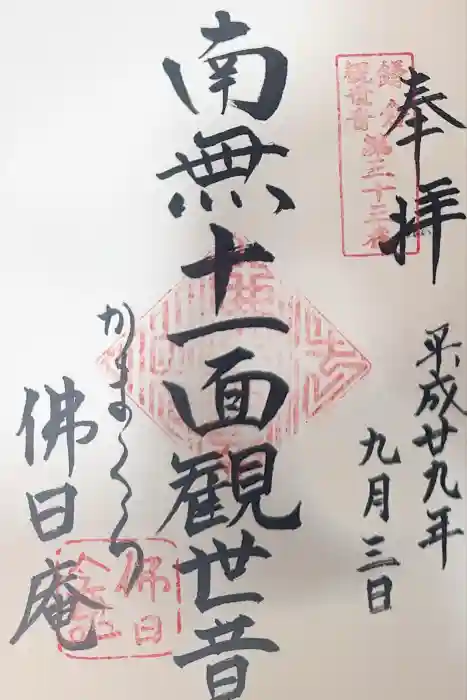 奉拝
鎌倉
観世音
第三十三番
平成廿九年
九月三日
南無十一面観世音
かまくら
佛日庵
佛日